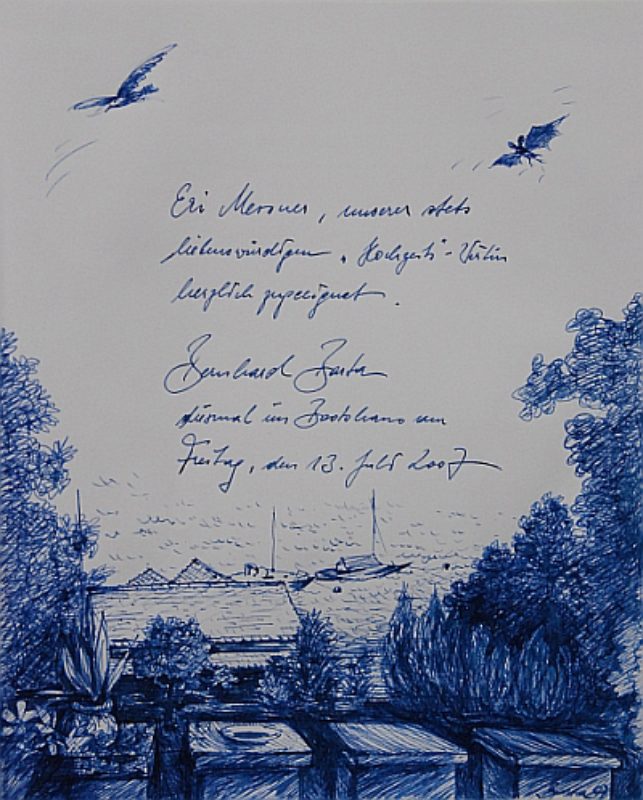 Eri Messner, unserer stets
liebenswürdigen „Hochzeits"-Wirtin
herzlich zugeeignet.
Bernhard Barta
diesmal im Bootshaus am
Freitag, den 13. Juli 2007